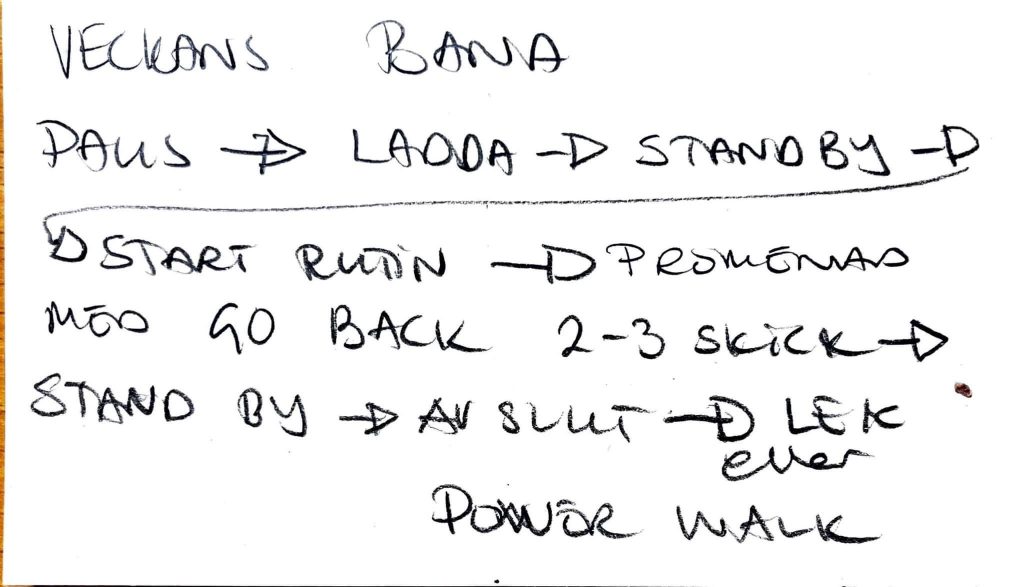 VECKANS BANA
PAUS → LADDA → STANDBY →
START RUTIN → PROMENAD
MED GO BACK 2-3 SKICK →
STAND BY → AVSLUT → LEK
eller
POWER WALK